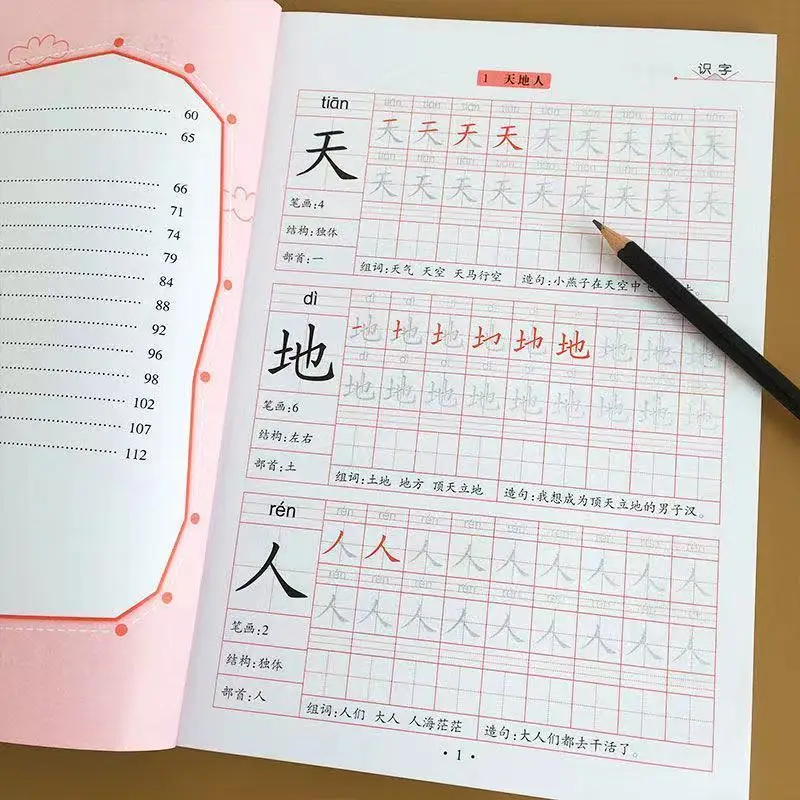 60
65
66
71
74
79
84
88
92
96
98
102
107
112
识字
1 天地人
tiān
tiān tiān tiān tiān tiān tiān tiān tiān tiān
天
天 天 天 天 天 天
tiān tiān tiān tiān tiān tiān tiān tiān tiān
天 天 天 天 天 天 天 天 天
笔画:4
结构:独体
部首:一
组词:天气 天空 天马行空
造句:小燕子在天空中飞
dì
dì dì dì dì dì dì dì
地
地 地 地
dì dì dì dì dì dì dì
地 地 地 地 地 地 地 地 地
笔画:6
结构:左右
部首:土
组词:土地 地方 顶天立地
造句:我想成为顶天立地的男子汉。
rén
rén rén rén rén rén rén rén rén rén
人
人 人 人 人 人 人 人 人 人
rén rén rén rén rén rén rén rén rén
人 人 人 人 人 人 人 人 人
笔画:2
结构:独体
部首:人
组词:人们 大人 人海茫茫
造句:大人们都去干活了。
·1·